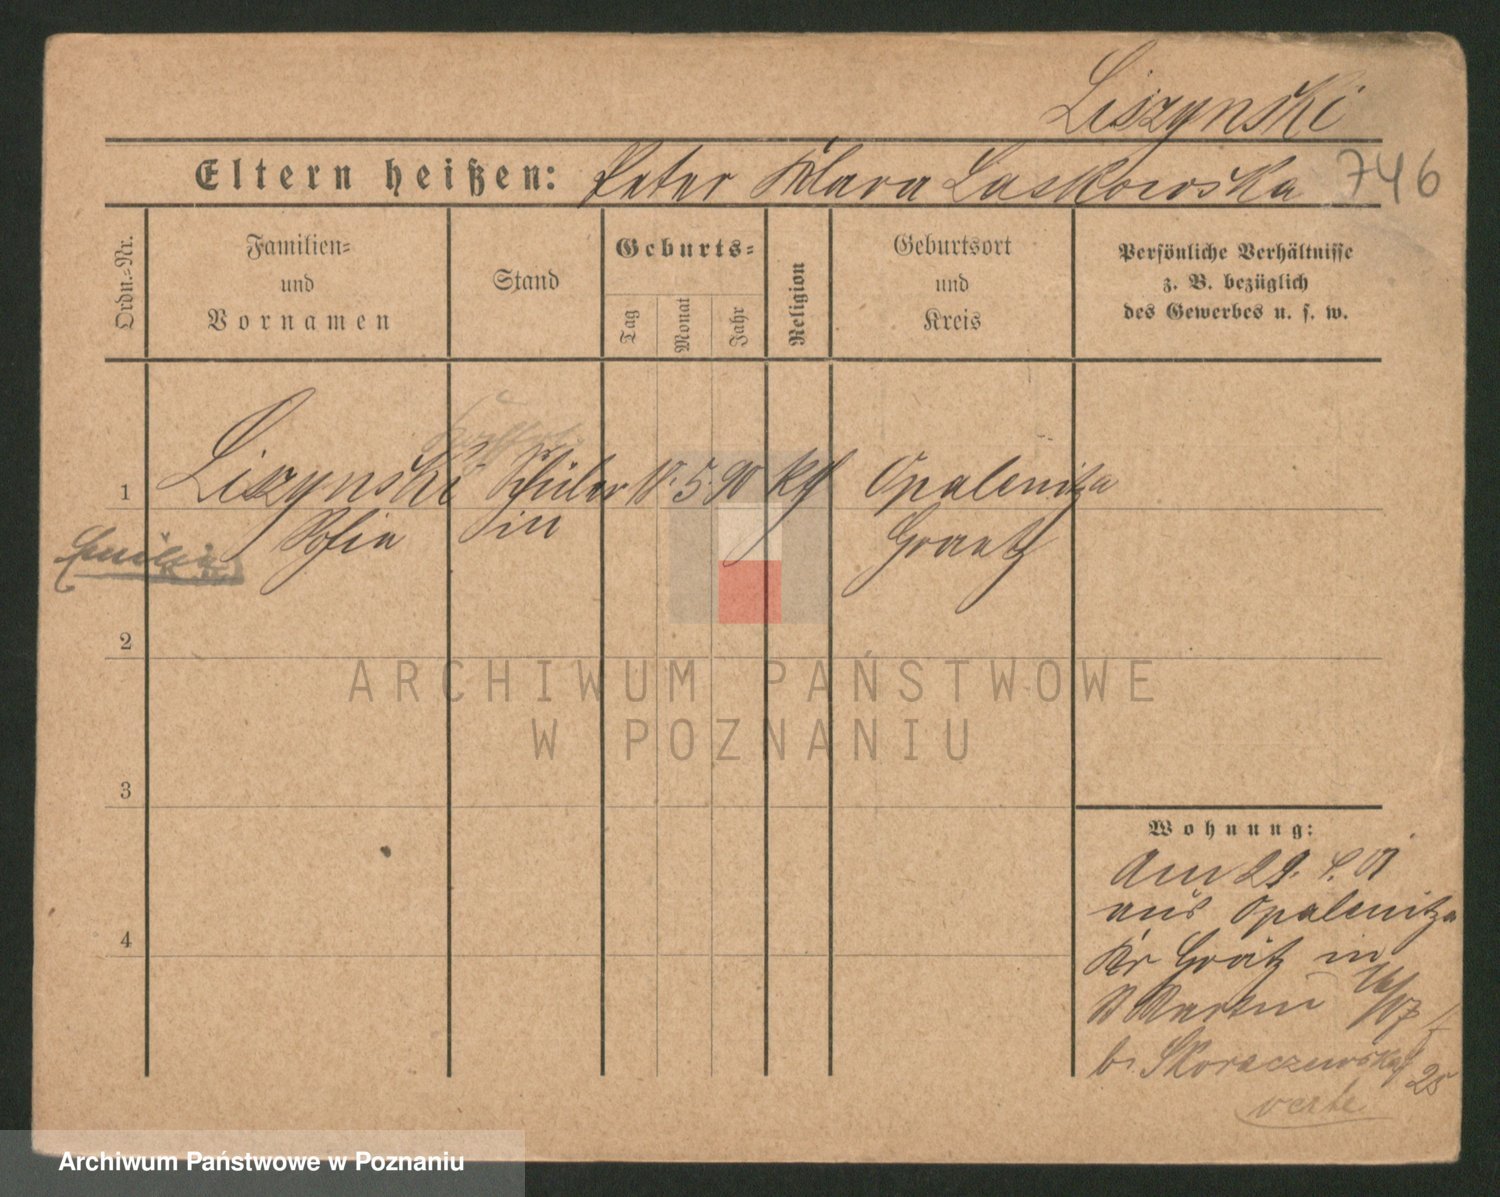 Liszynski
Eltern heißen: Peter Klara Laskowska 746
Ordn.-Nr.
Familien-
und
Vornamen
Stand
Geburts-
Tag
Monat
Jahr
Religion
Geburtsort
und
Kreis
Persönliche Verhältnisse
z. B. bezüglich
des Gewerbes u. s. w.
1 Liszynski Schüler 18. 5. 90 kth Opalenitza
Sofia in Graetz
2
3
4
Wohnung:
Am 29. 4. 01
aus Opalenitza
Kr Grätz in
St Martin 16/17
b. Skoraczewska 25
verte
ARCHIWUM PAŃSTWOWE
W POZNANIU
Archiwum Państwowe w Poznaniu